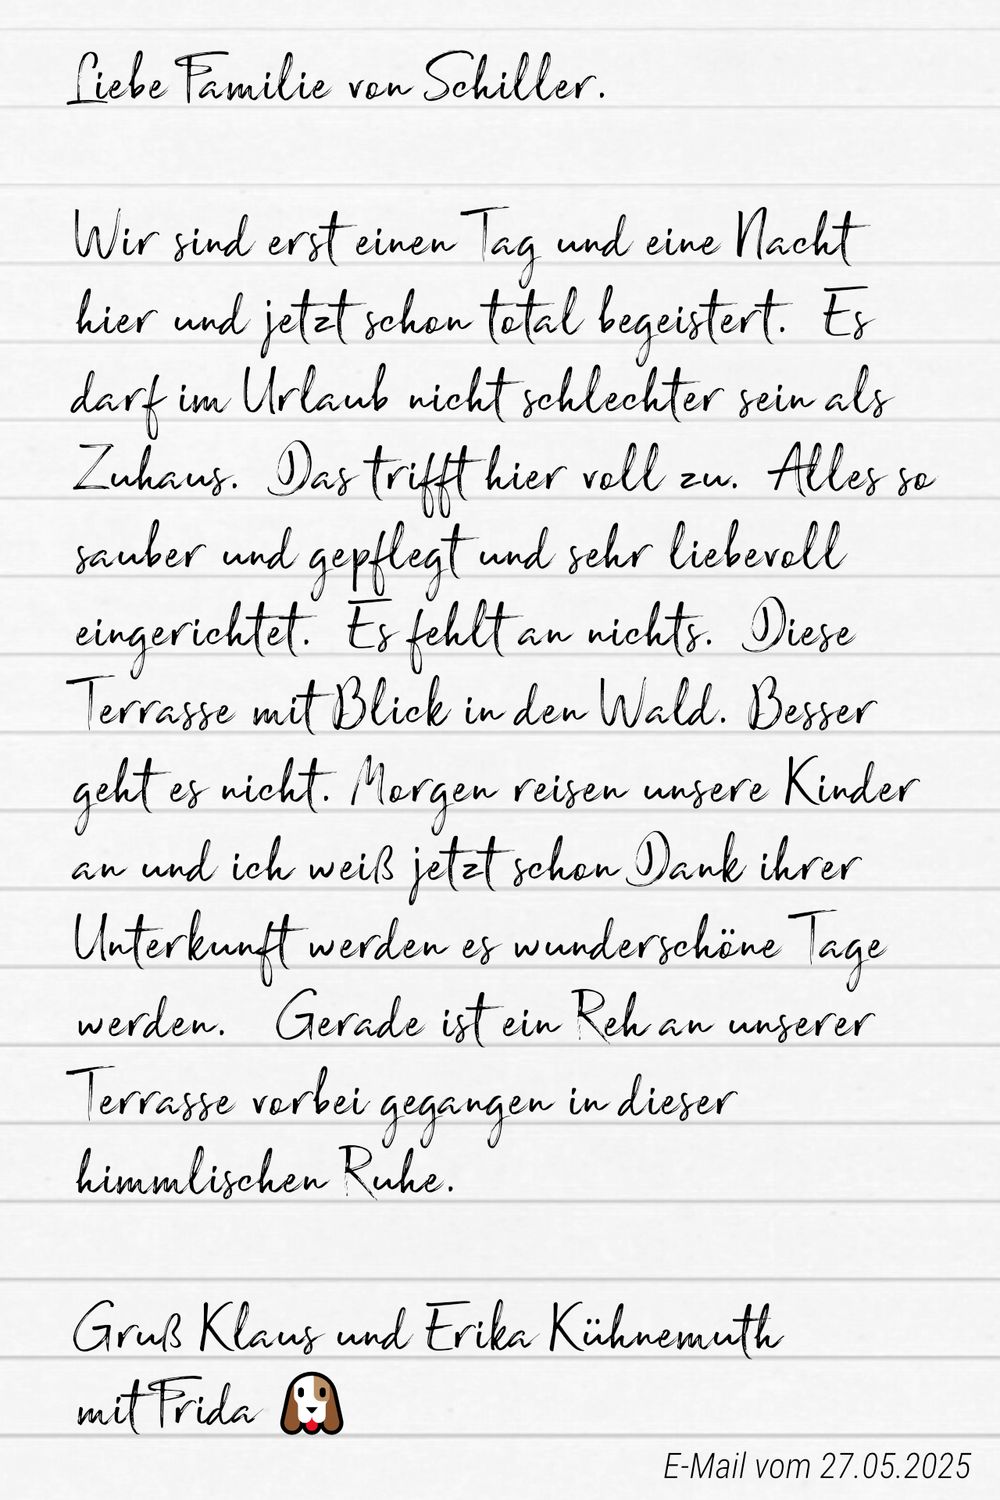 Liebe Familie von Schiller.
Wir sind erst einen Tag und eine Nacht
hier und jetzt schon total begeistert. Es
darf im Urlaub nicht schlechter sein als
Zuhaus. Das trifft hier voll zu. Alles so
sauber und gepflegt und sehr liebevoll
eingerichtet. Es fehlt an nichts. Diese
Terrasse mit Blick in den Wald. Besser
geht es nicht. Morgen reisen unsere Kinder
an und ich weiß jetzt schon Dank ihrer
Unterkunft werden es wunderschöne Tage
werden. Gerade ist ein Reh an unserer
Terrasse vorbei gegangen in dieser
himmlischen Ruhe.
Gruß Klaus und Erika Kühnemuth
mit Frida
E-Mail vom 27.05.2025